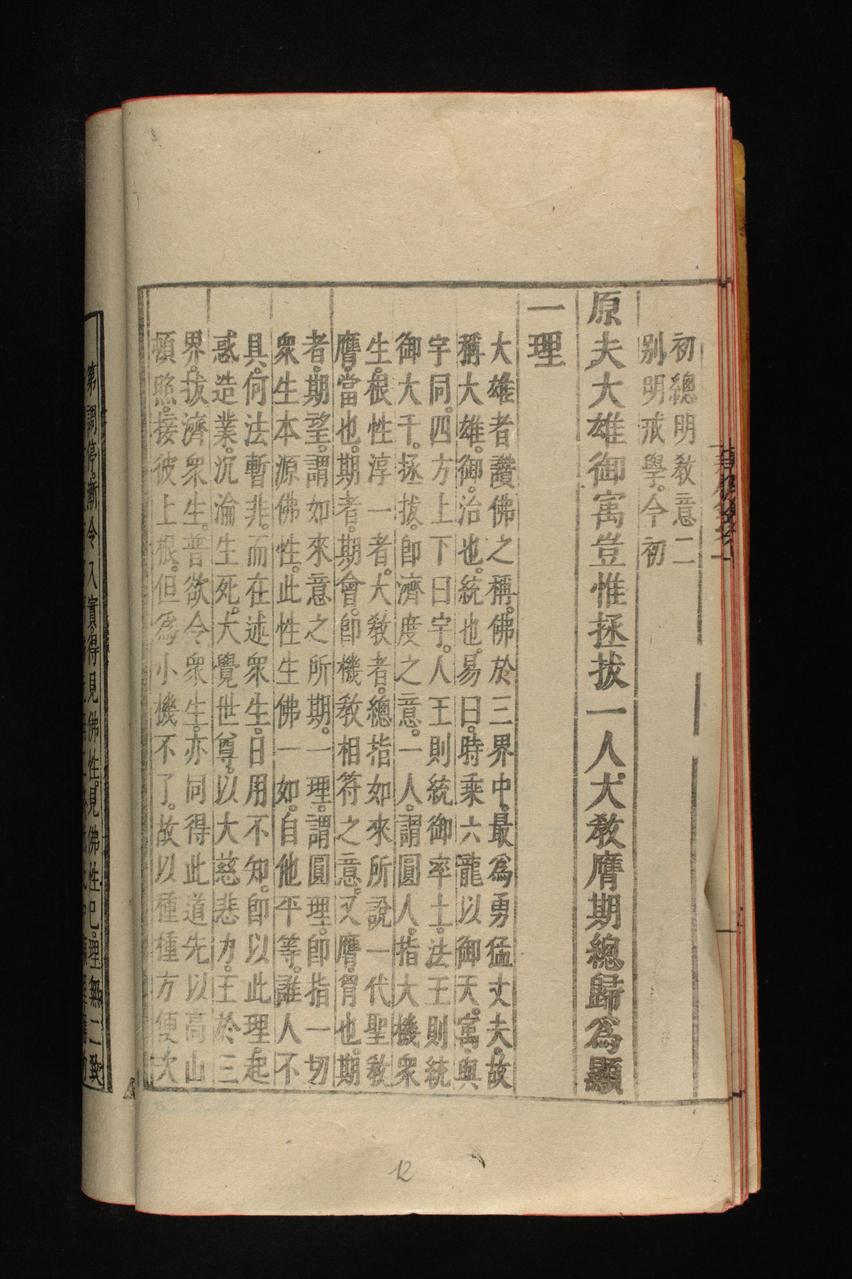 初總明教意二
別明戒學。今初
原夫大雄御㝢豈惟拯拔一人。大敎膺期總歸為顯
一理
大雄者讚佛之稱。佛於三界中。最為勇猛丈夫。故
稱大雄。御。治也。統也。易曰。時乘六龍以御天。㝢與
宇同。四方上下曰宇。人王則統御率土。法王則統
御大千。拯拔。卽濟度之意。一人。謂圓人。指大機眾
生。根性淳一者。大敎者。總指如來所說一代聖敎
膺。當也。期者。期會。卽機敎相符之意。又膺。胷也。期
者。期望。謂如來意之所期。一理。謂圓理。卽指一切
眾生本源佛性。此性生佛一如。自他平等。誰人不
具。何法暫非。而在迷眾生。日用不知。卽以此理。起
惑造業。沉淪生死。大覺世尊。以大慈悲力。王於三
界。拔濟眾生。普欲令眾生。亦同得此道。先以高山
頓照。接彼上根。但為小機不了。故以種種方便。次
第調停。漸令入實。得見佛性。見佛性已。理無二致
12